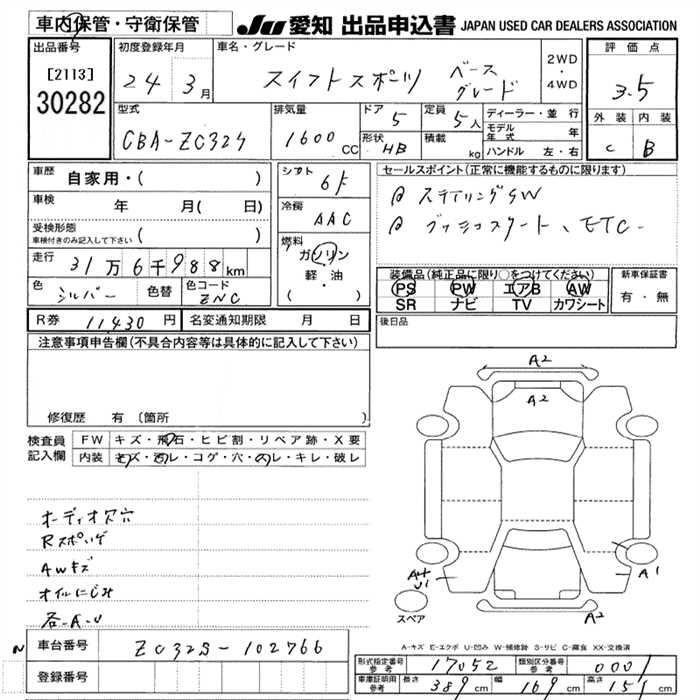 車内保管・守衛保管
JU 愛知 出品申込書 JAPAN USED CAR DEALERS ASSOCIATION
出品番号
[2113]
30282
初度登録年月
24年 3月
車名・グレード
スイフトスポーツ ベースグレード
2WD
・
4WD
評価点
3.5
外装 内装
C B
型式
CBA-ZC32S
排気量
1600 CC
ドア
5
定員
5人
形状
HB
積載
kg
ディーラー・並行
モデル年式 年
ハンドル 左・右
車歴
自家用・( )
車検 年 月( 日)
受検形態
車検付きのみ記入して下さい ( )
走行 31万6千988km
色 シルバー 色替 色コード ZNC
シフト
6F
冷房
AAC
燃料
ガソリン
軽・油
( ・ )
セールスポイント(正常に機能するものに限ります)
ステアリングSW
プッシュスタート、ETC
装備品(純正品に限り○をつけてください)
PS PW エアB AW
SR ナビ TV カワシート
新車保証書
有・無
R券 11430円 名変通知期限 月 日
後日品
注意事項申告欄(不具合内容等は具体的に記入して下さい)
修復歴 有 〔箇所 〕
検査員記入欄
FW キズ・飛石・ヒビ割・リペア跡・X要
内装 キズ・汚レ・コゲ・穴・のレ・キレ・破レ
オーディオ穴
Rスポイラ
AWキズ
オイルにじみ
各-A-U
A2
A2
A4
U1
A1
A2
スペア
A-キズ E-エクボ U-凹み W-補修跡 S-サビ C-腐食 XX-交換済
N
車台番号 ZC32S-102766
登録番号
形式指定番号 参考 17052 類別区分番号 参考 0001
車庫証明用 参考 長さ 389cm 幅 169cm 高さ 151cm